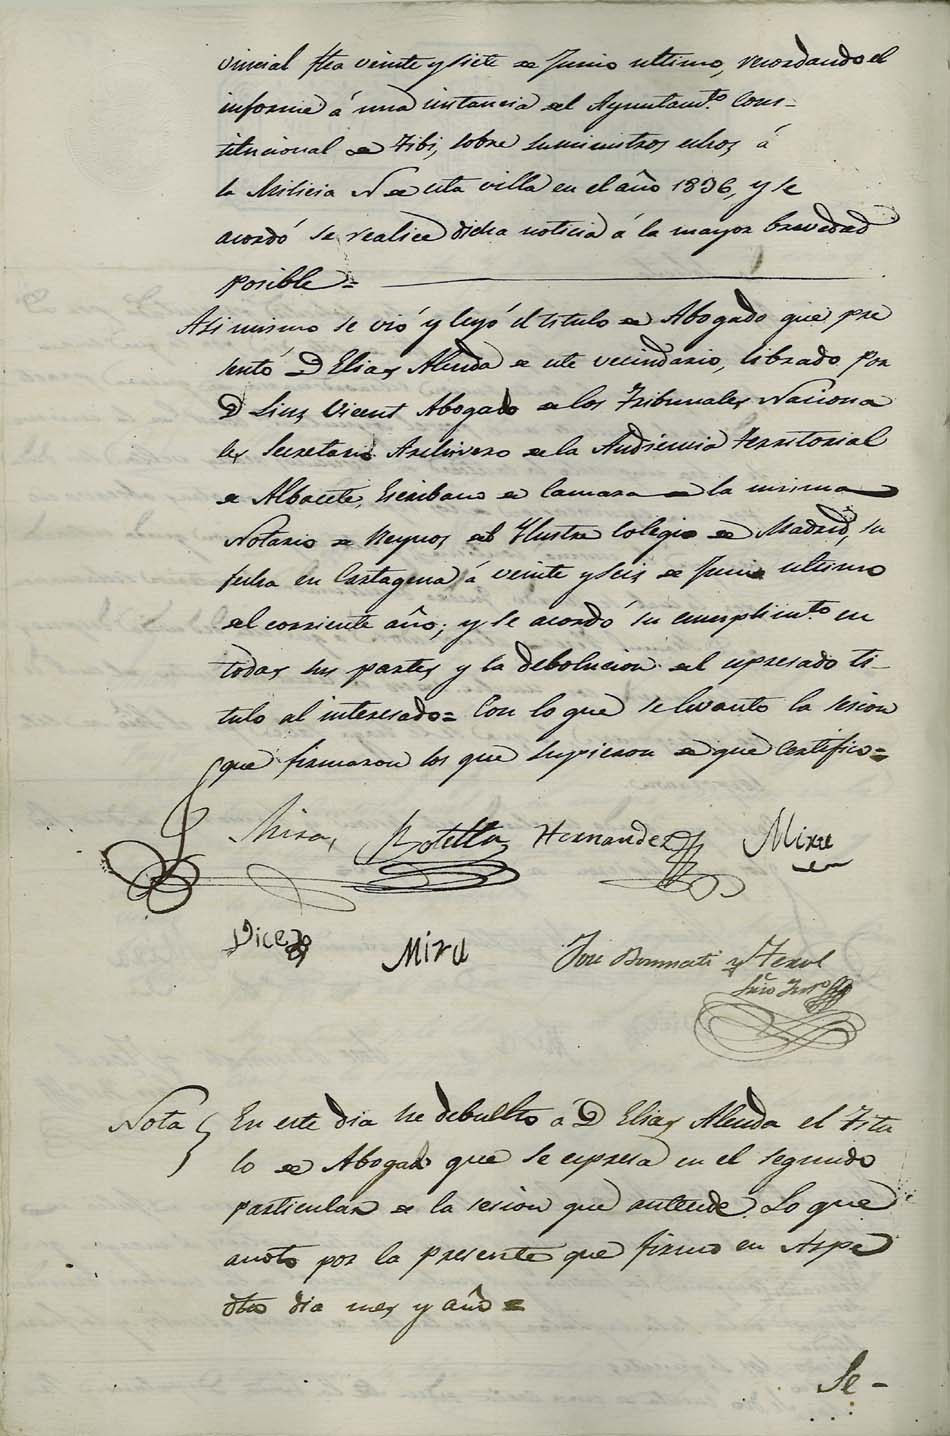 vincial fha veinte y siete de Junio ultimo, recordando el
informe á una instancia del Ayuntamto. Cons-
titucional de Tibi, sobre suministros echos á
la Milicia N de esta villa en el año 1836, y se
acordó se realice dicha noticia á la mayor brevedad
posible=
Asi mismo se vió y leyó el titulo de Abogado que pre
sentó D Elias Alenda de este vecindario, librado por
D Luis Vicent Abogado de los Tribunales Naciona
les Secretario Archivero de la Audiencia territorial
de Albacete, Escribano de Camara de la misma
Notario de Reynos del Ilustre Colegio de Madrid, su
fecha en Cartagena á veinte y seis de Junio ultimo
del corriente año; y se acordó su cumplimto. en
todas sus partes y la debolucion del espresado ti-
tulo al interesado= Con lo que se levanto la sesion
que firmaron los que supieron de que certifico=
Mira, Botella Hernandez Mira
Dicez Mira José Bonmati y Terol
Srio Intro
Nota { En este dia he debuelto á D Elias Alenda el Titu
lo de Abogado que se espresa en el segundo
particular de la sesion que antecede. Lo que
anoto por la presente que firmo en Aspe
dho dia mes y año =
Se-